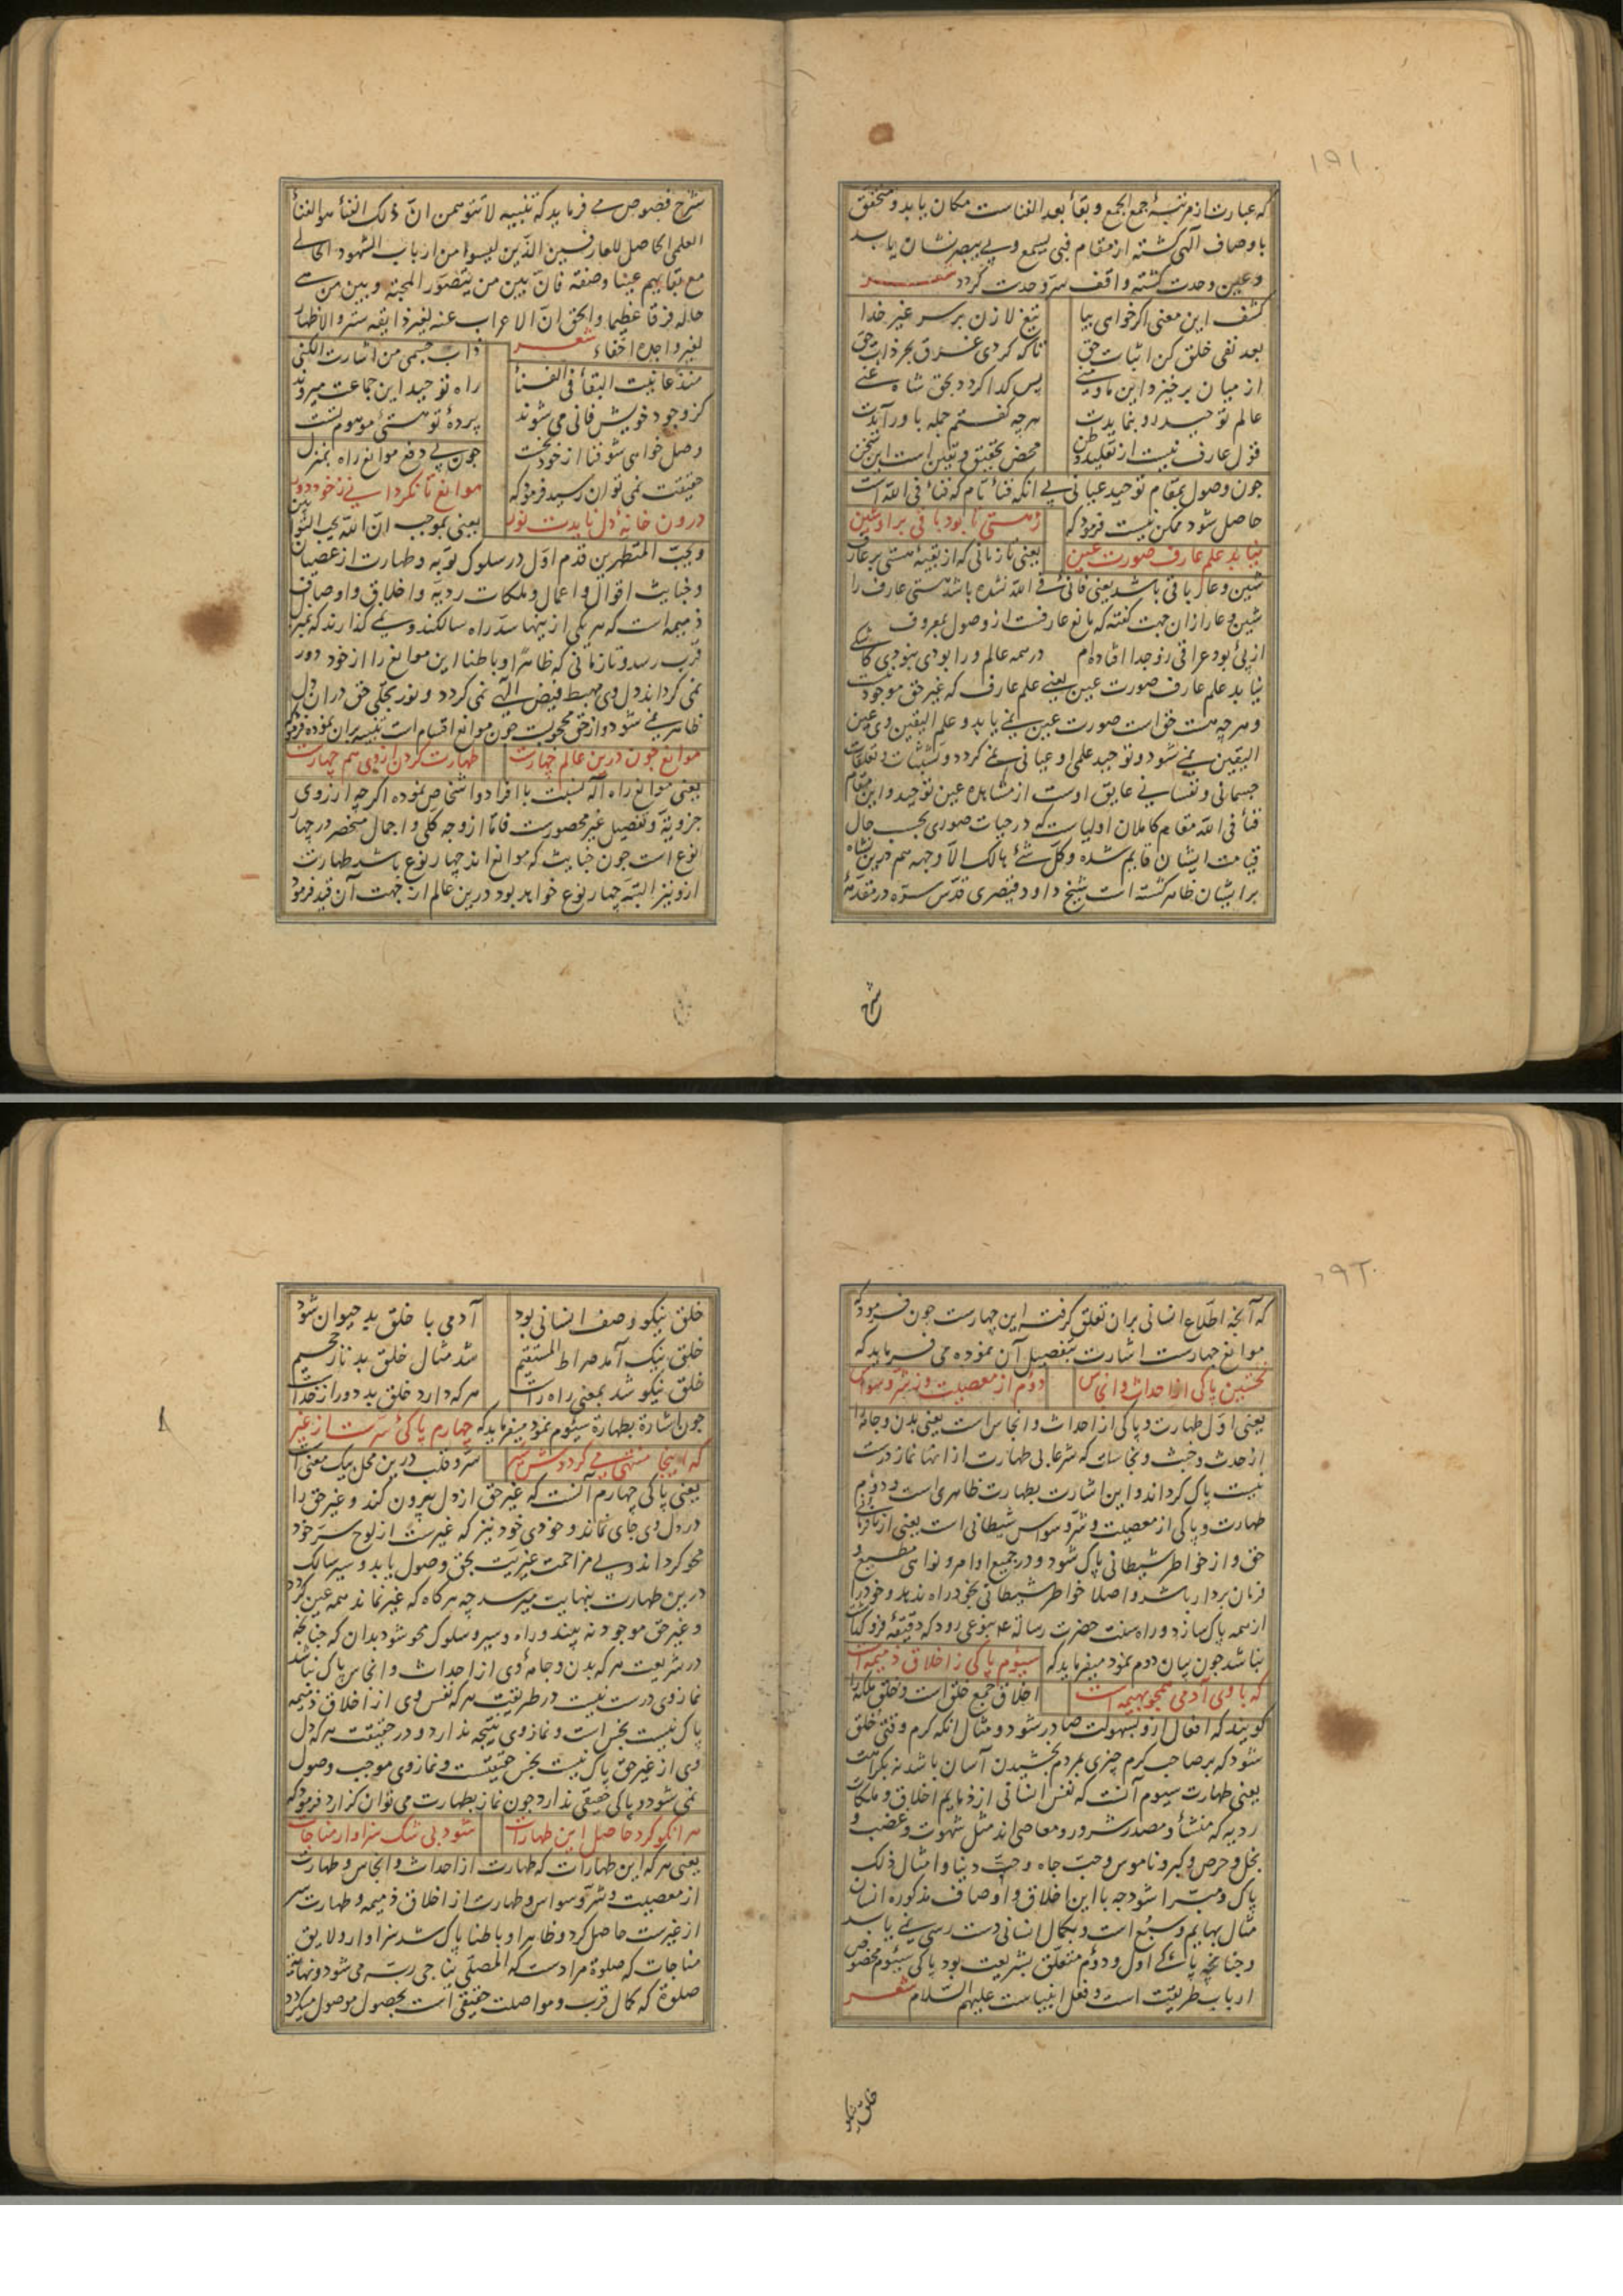 ۱۹۱
که عبارت از مرتبهٔ جمع الجمع و بقاء بعد الفناست مکان یابد و متحقق
باوصاف آلهی کشته از مقام فبی یسمع وبی یبصر نشان یابد
وعین وحدت کشته واقف سرّ وحدت کردد شعر
کشف این معنی اکر خواهی بیا تیغ لا زن بر سر غیر خدا
بعد نفی خلق کن اثبات حق تا که کردی غرق بحر ذات حق
از میان برخیزد این ما و منی پس کدا کردد بحق شاه غنی
عالم توحید رو بنمایدت هرچه کفتم جمله باور آیدت
قول عارف نیست از تقلید و ظن محض تحقیق و یقین است این سخن
چون وصول بمقام توحید عیانی بی انکه فناء تام که فناء فی الله است
حاصل شود ممکن نیست فرمود که زهستی تا بود باقی برا و شین
نیابد علم عارف صورت عین یعنی تا زمانی که از بقیهٔ هستی بر عارف
شین و عار باقی باشد یعنی فانی فی الله نشده باشد هستی عارف را
شین و عار ازان جهت کفته که مانع عارفست از وصول بمعروف
از پی بود عراقی زو جدا افتاده‌ام در همه عالم ورا بودی نبودی کاشکی
نیابد علم عارف صورت عین یعنی علم عارف که غیر حق موجود نیست
و هرچه هست حق است صورت عین نمی یابد و علم الیقین وی عین
الیقین نمی شود و توحید علمی او عیانی نمی کردد و تشبثات و تعلقات
جسمانی و نفسانی عایق اوست از مشاهده عین توحید و این مقام
فناء فی الله مقام کاملان اولیاست که در حیات صوری بحسب حال
قیامت ایشان قایم شده و کل شئ هالک الّا وجهه هم درین نشاه
بر ایشان ظاهر کشته است شیخ داود قیصری قدس سره در مقدمهٔ
شرح
شرح فصوص می فرماید که تنبیه لا تتوهمن انّ ذلک الفناء هو الفناء
العلمی الحاصل للعارفین الذین لیسوا من ارباب الشهود الحالی
مع بقایهم عینا وصفة فانّ بین من یتصوّر المحبة وبین من هی
حاله فرقا عظیما والحق انّ الاعراب عنه لغیر ذایقه ستر والاظهار
لغیر واجده اخفاء شعر
منذ عاینت البقاء فی الفناء ذاب جسمی من اشارت الکنی
کز وجود خویش فانی می شوند راه توحید این جماعت میروند
وصل خواهی شو فنا از خود نخست پردهٔ تو هستئ موهوم تست
چون بی دفع موانع راه بمنزل
حقیقت نمی توان رسید فرمود که موانع تا نکردانی ز خود دور
درون خانهٔ دل نایدت نور یعنی بموجب انّ الله یحب التوابین
ویحب المتطهرین قدم اوّل در سلوک توبه و طهارت از عصیان
و خباثت اقوال و اعمال و ملکات ردیه و اخلاق و اوصاف
ذمیمه است که هر یکی از اینها سدّ راه سالکند و نمی کذارند که بمنزل
قرب رسد و تا زمانی که ظاهرا و باطنا این موانع را از خود دور
نمی کرداند دل وی مهبط فیض الهی نمی کردد و نور تجلی حق در ان دل
ظاهر نمی شود و از حق محجوبست چون موانع اقسام است تنبیه بران نموده فرمود که
موانع چون درین عالم چهارست طهارت کردن از وی هم چهارست
یعنی موانع راه اله نسبت با افراد و اشخاص نموده اکرچه از روی
جزویه و تفصیل غیر محصورست فامّا از وجه کلی و اجمال منحصر در چهار
نوع است چون خباثت که موانع اند چهار نوع باشد طهارت
ازو نیز البته چهار نوع خواهد بود درین عالم از جهت آن قید فرمود
۱۹۲
که آنچه اطّلاع انسانی بران تعلق کرفته این چهارست چون فرمود که
موانع چهارست اشارت بتفصیل آن نموده می فرماید که
نخستین پاکی از احداث و انجاس دوّم از معصیت وز شر وسواس
یعنی اوّل طهارت و پاکی از احداث و انجاس است یعنی بدن و جامه را
از حدث و خبث و نجاسات که شرعا بی طهارت از انها نماز درست
نیست پاک کرداند و این اشارت بطهارت ظاهری است و دوم
طهارت و پاکی از معصیت و شرّ وسواس شیطانی است یعنی از نافرمانی
حق و از خواطر شیطانی پاک شود و در جمیع اوامر و نواهی مطیع و
فرمان بردار باشد و اصلا خواطر شیطانی بخود راه ندهد و خود را
از همه پاک سازد و راه سنت حضرت رسالة بنوعی رود که دقیقهٔ فرو کذاشت
نباشد چون بیان دوم نمود میفرماید که سیوم پاکی ز اخلاق ذمیمه است
که با وی آدمی همچو بهیمه است اخلاق جمع خلق است و خلق ملکه را
کویند که افعال ازو بسهولت صادر شود و مثال انکه کرم وقتی خلق
شود که بر صاحب کرم چیزی بمردم بخشیدن آسان باشد نه بکراهت
یعنی طهارت سیوم آنست که نفس انسانی از ذمایم اخلاق و ملکات
ردیه که منشأ و مصدر شرور و معاصی اند مثل شهوت و غضب و
بخل و حرص و کبر و ناموس و حبّ جاه و حبّ دنیا و امثال ذلک
پاک و مبرّا شود چه با این اخلاق و اوصاف مذکوره انسان
مثال بهایم و سبع است و بکمال انسانی دست رسی نمی یابد
و چنانچه پاکی اول و دوّم متعلّق بشریعت بود پاکی سیّوم مخصوص
ارباب طریقت است و فعل انبیاست علیهم السّلام شعر
خلق نیکو
خلق نیکو وصف انسانی بود آدمی با خلق بد حیوان شود
خلق نیک آمد صراط المستقیم شد مثال خلق بد نار جحیم
خلق نیکو شد بمعنی راه راست هر که دارد خلق بد دور از خداست
چون اشارة بطهارة سیّوم نمود میفرماید که چهارم پاکئ سرّست از غیر
که اینجا منتهی می کردد ش سیر سرّ و قلب درین محل بیک معنی است
یعنی پاکی چهارم آنست که غیر حق از دل بیرون کند و غیر حق را
در دل وی جای نماند و خودی خود نیز که غیرست از لوح سرّ خود
محو کرداند و بی مزاحمت غیریّت بحق وصول یابد و سیر سالک
درین طهارت بنهایت میرسد چه هرکاه که غیر نماند همه عین کردد
و غیر حق موجود نه بیند و راه و سیر و سلوک محو شود بدان که چنانچه
در شریعت هر که بدن و جامهٔ وی از احداث و انجاس پاک نباشد
نماز وی درست نیست در طریقت هر که نفس وی از اخلاق ذمیمه
پاک نیست نجس است و نماز وی نتیجه ندارد و در حقیقت هر که دل
وی از غیر حق پاک نیست نجس حقیقتست و نماز وی موجب وصول
نمی شود و پاکی حقیقی ندارد چون نماز بطهارت می توان کزارد فرمود که
هر انکو کرد حاصل این طهارات شود بی شک سزاوار مناجات
یعنی هر که این طهارات که طهارت از احداث و انجاس و طهارت
از معصیت و شرّ وسواس و طهارت از اخلاق ذمیمه و طهارت سر
از غیرست حاصل کرد و ظاهرا و باطنا پاک شد سزاوار و لایق
مناجات که صلوة مرادست که المصلّی یناجی ربّه می شود و نهایة
صلوة که کمال قرب و مواصلت حقیقی است بحصول موصول میکردد